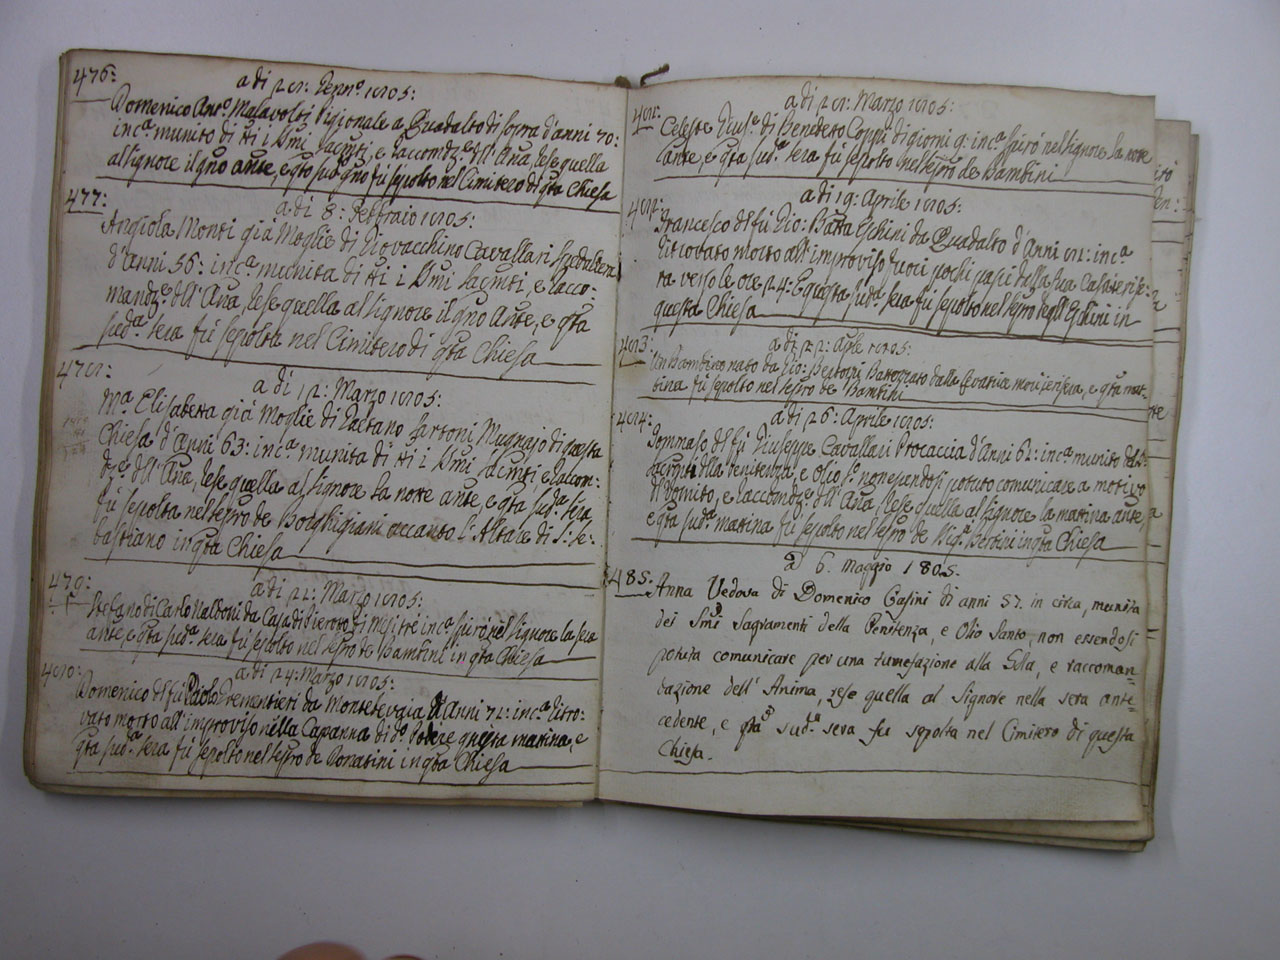 476:
a di 28: Genn.º 1805:
Domenico Ant.º Malavolti Pigionale a Quadalto di sopra d'anni 70:
inc.ª munito di tti i SSmi Sacmti, e raccomdz.e dll'Ana, rese quella
al Signore il gno ante, e qto sud.º gno fù sepolto nel Cimitero di qta Chiesa
477:
a di 8: Febbraio 1805:
Angiola Monti già Moglie di Giovacchino Cavallari Spedaliera
d'Anni 56: inc.ª munita di tti i SSmi Sacmti, e racco-
mandz.e dll'Ana, rese quella al Signore il gno Ante, e qta
sud.ª sera fù sepolta nel Cimitero di qta Chiesa
478:
a di 12: Marzo 1805:
Mª Elisabetta già Moglie di Gaetano Sartoni Mugnajo di questa
Chiesa d'Anni 63: inc.ª munita di tti i SSmi Sacmti e raccom-
dz.e dll'Ana, rese quella al Signore la notte ante, e qta sud.ª sera
fù sepolta nel sepro de Borghigiani accanto l'Altare di S: Se-
bastiano in qta Chiesa
479:
a di 22: Marzo 1805:
Stefano di Carlo Nalboni da Casa di Pieroto di Mesi tre inc.ª spirò nel Signore la sera
ante, e qta sud.ª sera fù sepolto nel sepro de Bambini in qta Chiesa
480:
a di 24: Marzo 1805:
Domenico di fù Paolo Trementieri da Montetevaia d'Anni 72: inc.ª ritro:
vato morto all'improviso nella Capanna di d.º Podere questa mattina, e
qta sud.ª sera fù sepolto nel sepro de Donatini in qta Chiesa
481:
a di 28: Marzo 1805:
Celeste Gius.e di Benedetto Coppi di giorni 9: inc.ª spirò nel Signore la notte
ante, e qta sud.ª sera fù sepolto nel sepro de Bambini
482:
a di 19: Aprile 1805:
Francesco dl fù Gio: Batta Eschini da Quadalto d'Anni 82: inc.ª
ritrovato morto all'improviso fuori pochi passi della sua Casa ieri se-
ra verso le ore 24: E questa sud.ª sera fù sepolto nel sepro degli Eschini in
questa Chiesa
483:
a di 22: Aple 1805:
Un Bambino nato da Gio: Bertozzi Battezzato dalla Levatrice morì iersera, e qta mat-
tina fù sepolto nel sepro de Bambini
484:
a di 26: Aprile 1805:
Tommaso dl fù Giuseppe Cavallari Procaccia d'Anni 62: inc.ª munito de SS:
Sacmti della Penitenza, e Olio S.º non essendosi potuto comunicare a motivo
dl Vomito, e raccomdz.e dll'Ana, rese quella al Signore la matina ante, e
e qta sud.ª matina fù sepolto nel sepro de Sig.i Bertini in qta Chiesa
485:
A 6. Maggio 1805.
Anna Vedova di Domenico Casini di anni 57. in circa, munita
dei SSmi Sagramenti della Penitenza, e Olio Santo, non essendosi
potuta comunicare per una tumefazione alla Gola, e raccoman=
dazione dell'Anima, rese quella al Signore nella sera ante=
cedente, e qta sud.ª sera fu sepolta nel Cimitero di questa
Chiesa.